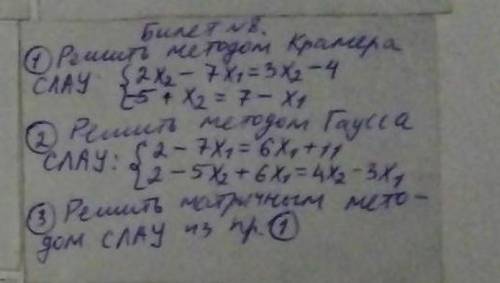 Билет №8.
① Решить методом Крамера
СЛАУ {2x₂ - 7x₁ = 3x₂ - 4
{5 + x₂ = 7 - x₁
② Решить методом Гаусса
СЛАУ: {2 - 7x₁ = 6x₁ + 11
{2 - 5x₂ + 6x₁ = 4x₂ - 3x₁
③ Решить матричным мето-
дом СЛАУ из пр. ①